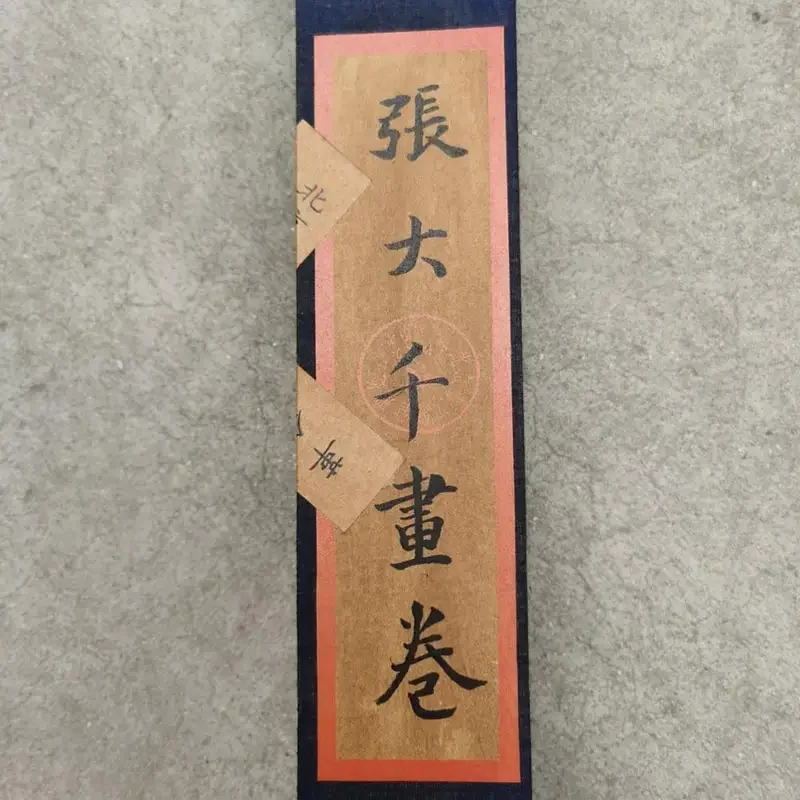 張大千畫卷
北
草